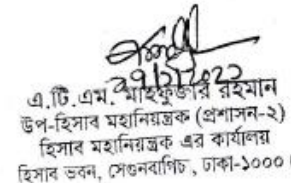 ২৭/১/২০২২
এ.টি.এম. মাহফুজার রহমান
উপ-হিসাব মহানিয়ন্ত্রক (প্রশাসন-২)
হিসাব মহানিয়ন্ত্রক এর কার্যালয়
হিসাব ভবন, সেগুনবাগিচা, ঢাকা-১০০০।